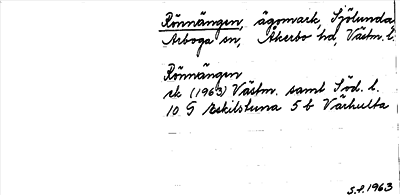 Rönnängen, ägomark, Sjölunda
Arboga sn, Åkerbo hd, Västm. l.
Rönnängen
ek (1963) Västm. samt Söd. l.
10 G Eskilstuna 5 b Värhulta
S.F. 1963